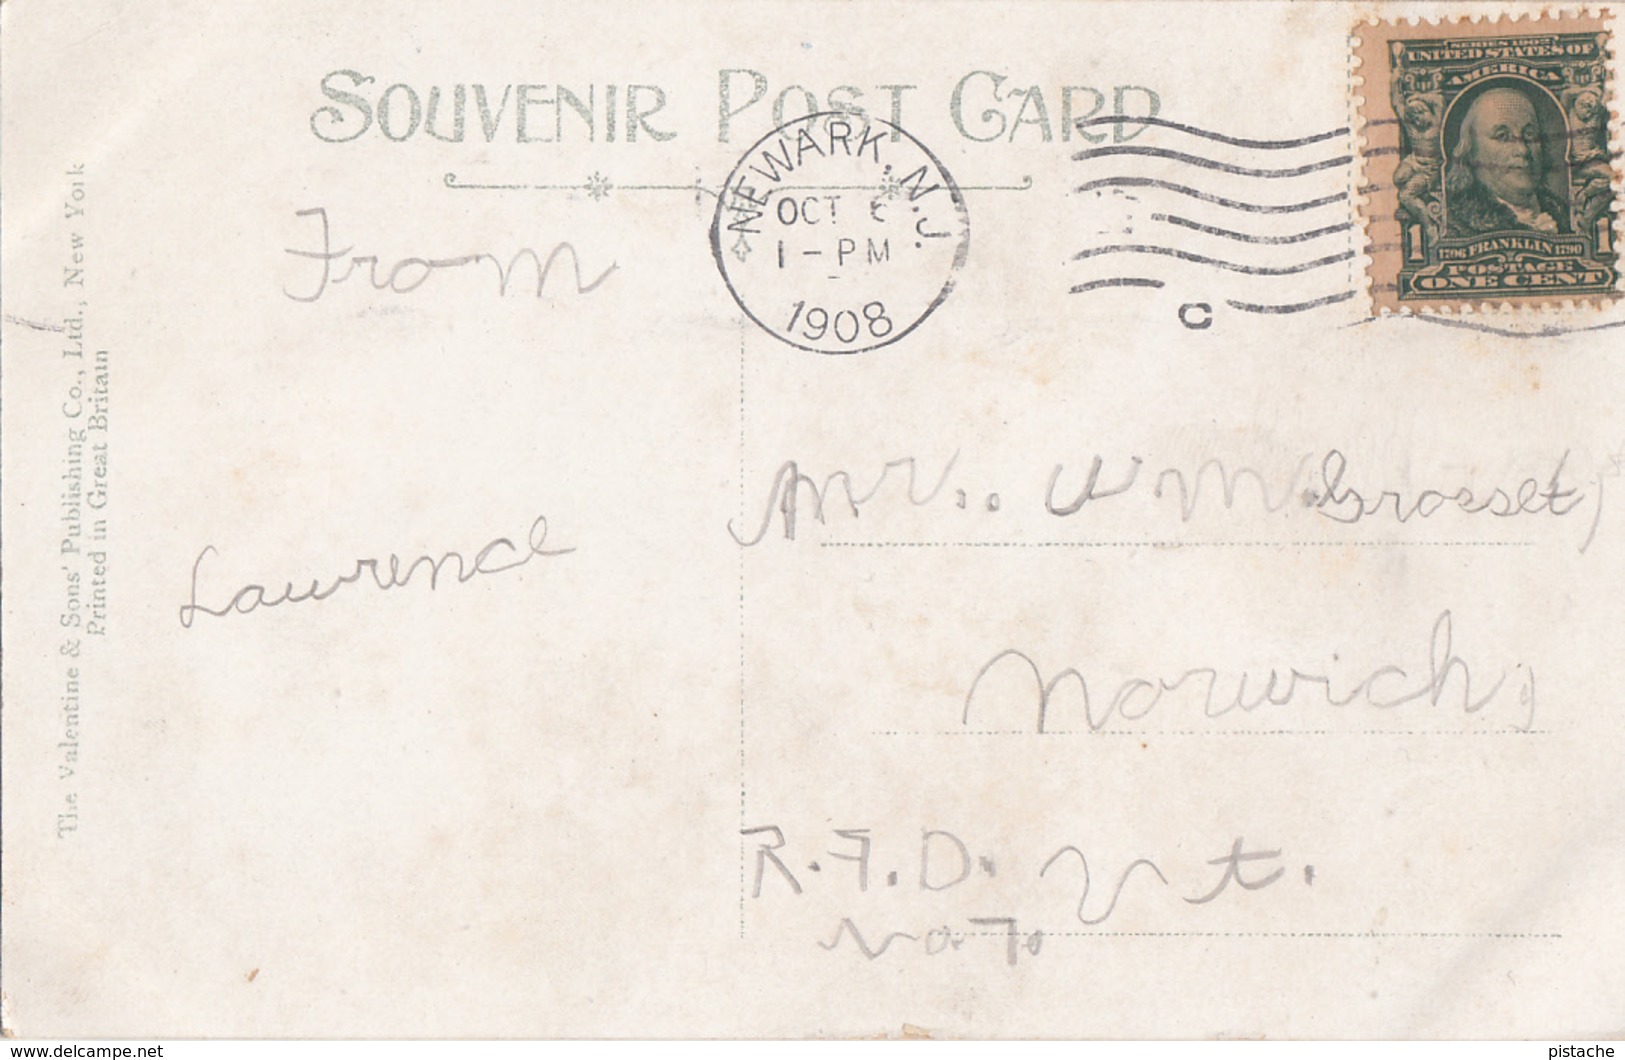 SOUVENIR POST CARD
NEWARK, N.J.
OCT
1-PM
1908
C
SERIES 1902
UNITED STATES OF
AMERICA
1706 FRANKLIN 1790
1 1
POSTAGE
ONE CENT
The Valentine & Sons' Publishing Co., Ltd., New York
Printed in Great Britain
From
Lawrence
Mr. W M. Grosset,
Norwich,
R.F.D. Vt.
www.delcampe.net
pistache